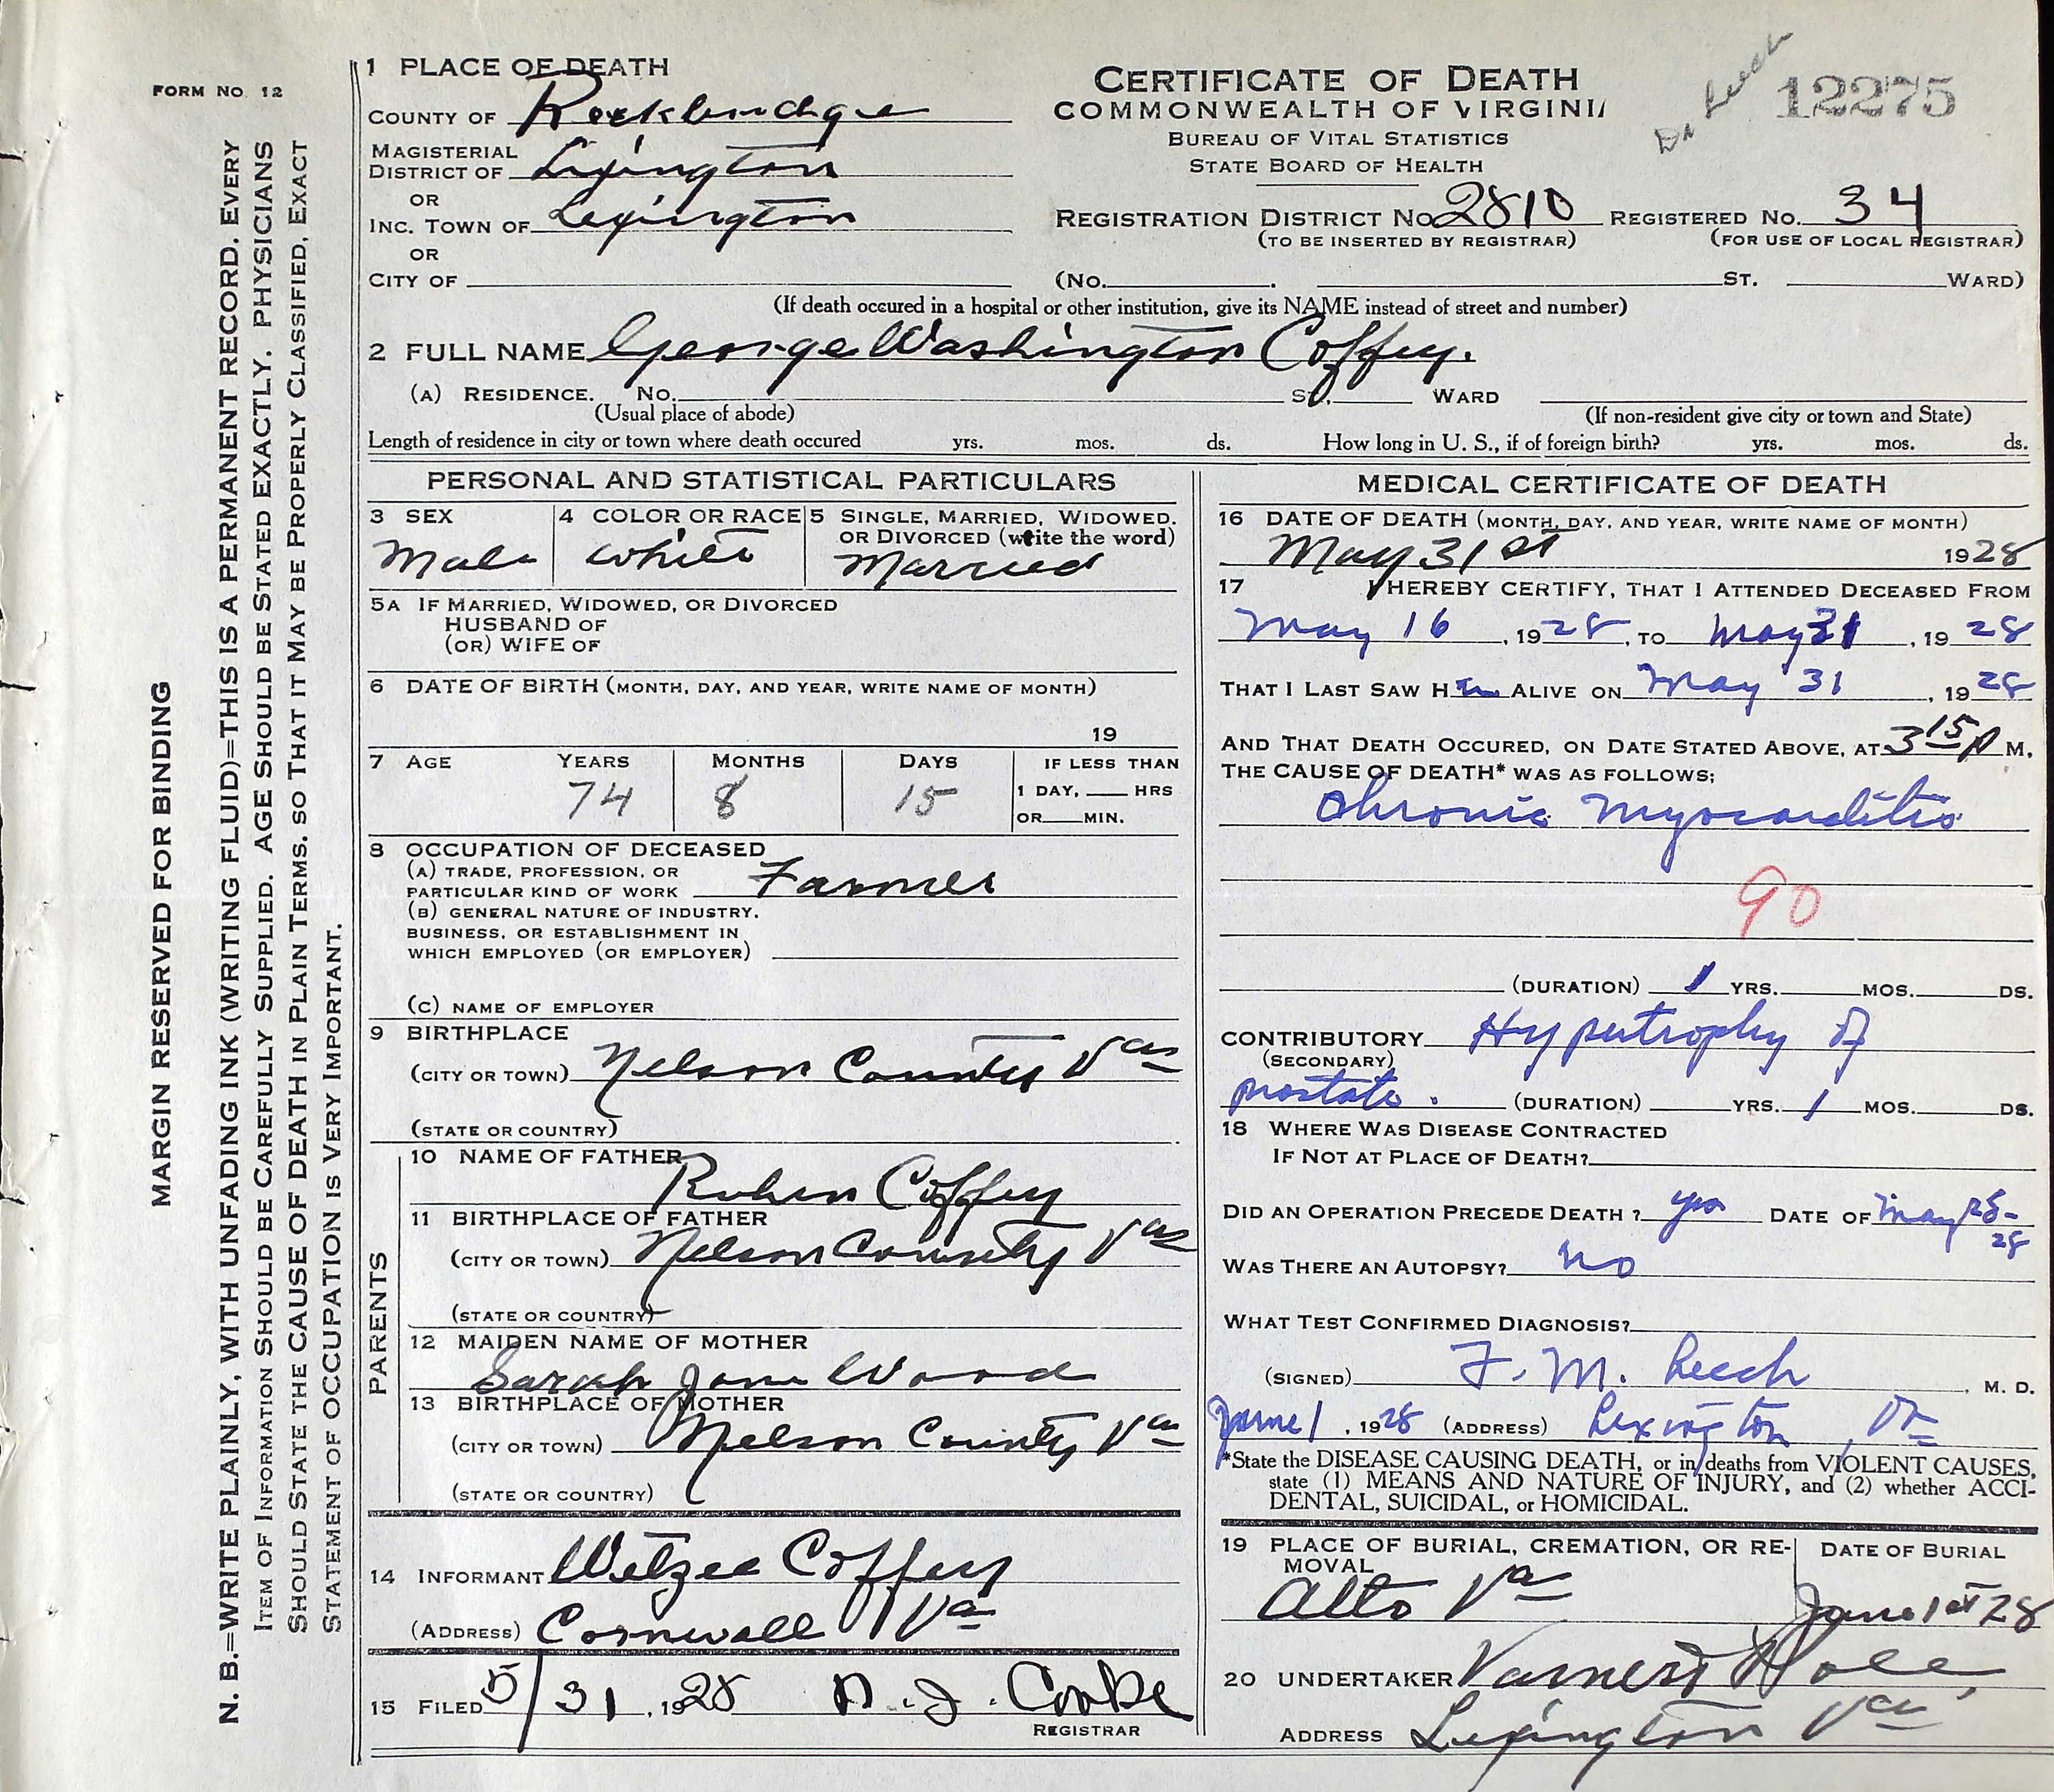 FORM NO. 12
MARGIN RESERVED FOR BINDING
N. B.=WRITE PLAINLY, WITH UNFADING INK (WRITING FLUID)=THIS IS A PERMANENT RECORD. EVERY
ITEM OF INFORMATION SHOULD BE CAREFULLY SUPPLIED. AGE SHOULD BE STATED EXACTLY. PHYSICIANS
SHOULD STATE THE CAUSE OF DEATH IN PLAIN TERMS. SO THAT IT MAY BE PROPERLY CLASSIFIED, EXACT
STATEMENT OF OCCUPATION IS VERY IMPORTANT.
1 PLACE OF DEATH
COUNTY OF Rockbridge
MAGISTERIAL
DISTRICT OF Lexington
OR
INC. TOWN OF Lexington
OR
CITY OF
CERTIFICATE OF DEATH
COMMONWEALTH OF VIRGINI
BUREAU OF VITAL STATISTICS
STATE BOARD OF HEALTH
Dr Leech
12275
REGISTRATION DISTRICT NO. 2810 REGISTERED NO. 34
(TO BE INSERTED BY REGISTRAR) (FOR USE OF LOCAL REGISTRAR)
(NO. ST. WARD)
(If death occured in a hospital or other institution, give its NAME instead of street and number)
2 FULL NAME George Washington Coffey.
(A) RESIDENCE. NO. ST., WARD
(Usual place of abode) (If non-resident give city or town and State)
Length of residence in city or town where death occured yrs. mos. ds. How long in U. S., if of foreign birth? yrs. mos. ds.
PERSONAL AND STATISTICAL PARTICULARS
3 SEX 4 COLOR OR RACE 5 SINGLE, MARRIED, WIDOWED.
OR DIVORCED (write the word)
Male White Married
5A IF MARRIED, WIDOWED, OR DIVORCED
HUSBAND OF
(OR) WIFE OF
6 DATE OF BIRTH (MONTH, DAY, AND YEAR, WRITE NAME OF MONTH)
19
7 AGE YEARS MONTHS DAYS IF LESS THAN
74 8 15 1 DAY, HRS
OR MIN.
8 OCCUPATION OF DECEASED
(A) TRADE, PROFESSION, OR
PARTICULAR KIND OF WORK Farmer
(B) GENERAL NATURE OF INDUSTRY.
BUSINESS, OR ESTABLISHMENT IN
WHICH EMPLOYED (OR EMPLOYER)
(C) NAME OF EMPLOYER
9 BIRTHPLACE
(CITY OR TOWN) Nelson County Va
(STATE OR COUNTRY)
PARENTS
10 NAME OF FATHER
Ruben Coffey
11 BIRTHPLACE OF FATHER
(CITY OR TOWN) Nelson County Va
(STATE OR COUNTRY)
12 MAIDEN NAME OF MOTHER
Sarah Jane Wood
13 BIRTHPLACE OF MOTHER
(CITY OR TOWN) Nelson County Va
(STATE OR COUNTRY)
14 INFORMANT Wetzee Coffey
(ADDRESS) Cornwall Va
15 FILED 5/31, 1928 Cooke
REGISTRAR
MEDICAL CERTIFICATE OF DEATH
16 DATE OF DEATH (MONTH, DAY, AND YEAR, WRITE NAME OF MONTH)
May 31st 1928
17 I HEREBY CERTIFY, THAT I ATTENDED DECEASED FROM
May 16, 1928, TO May 31, 1928
THAT I LAST SAW HIm ALIVE ON May 31, 1928
AND THAT DEATH OCCURED, ON DATE STATED ABOVE, AT 3 15 P M.
THE CAUSE OF DEATH* WAS AS FOLLOWS;
Chronic Myocarditis
90
(DURATION) 1 YRS. MOS. DS.
CONTRIBUTORY Hypertrophy of
(SECONDARY)
prostate. (DURATION) YRS. 1 MOS. DS.
18 WHERE WAS DISEASE CONTRACTED
IF NOT AT PLACE OF DEATH?
DID AN OPERATION PRECEDE DEATH? yes DATE OF May 28-
28
WAS THERE AN AUTOPSY? no
WHAT TEST CONFIRMED DIAGNOSIS?
(SIGNED) F. M. Leech, M. D.
June 1, 1928 (ADDRESS) Lexington, Va
*State the DISEASE CAUSING DEATH, or in deaths from VIOLENT CAUSES,
state (1) MEANS AND NATURE OF INJURY, and (2) whether ACCI-
DENTAL, SUICIDAL, or HOMICIDAL.
19 PLACE OF BURIAL, CREMATION, OR RE- DATE OF BURIAL
MOVAL
Alto Va June 1st 28
20 UNDERTAKER
ADDRESS Lexington Va